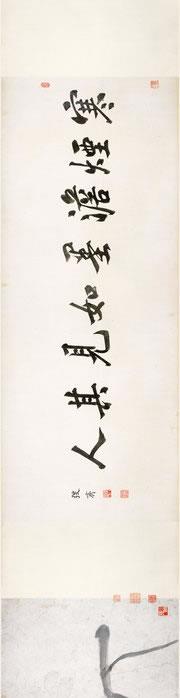 寒煙澹墨如見其人